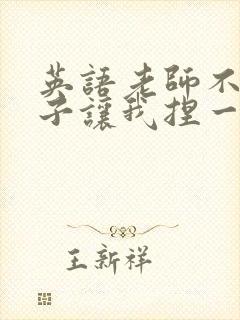 英語老師不
子讓我捏一
王新祥